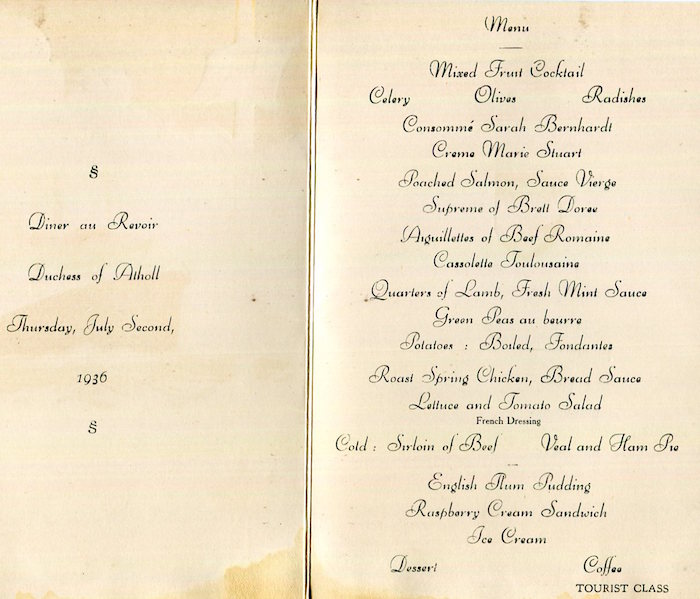 §
Diner au Revoir
Duchess of Atholl
Thursday, July Second,
1936
§
Menu
Mixed Fruit Cocktail
Celery Olives Radishes
Consommé Sarah Bernhardt
Creme Marie Stuart
Poached Salmon, Sauce Vierge
Supreme of Brett Doree
Aiguillettes of Beef Romaine
Cassolette Toulousaine
Quarters of Lamb, Fresh Mint Sauce
Green Peas au beurre
Potatoes : Boiled, Fondantes
Roast Spring Chicken, Bread Sauce
Lettuce and Tomato Salad
French Dressing
Cold : Sirloin of Beef Veal and Ham Pie
English Plum Pudding
Raspberry Cream Sandwich
Ice Cream
Dessert Coffee
TOURIST CLASS